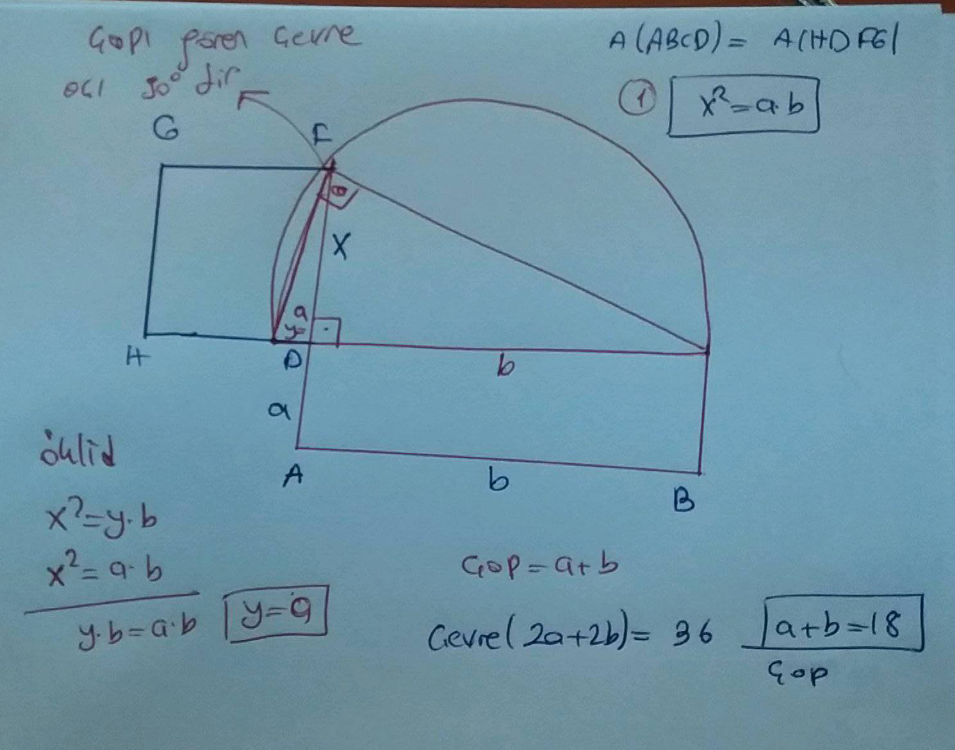 Çapı gören Çevre
açı 90° dir
A(ABCD) = A(HDFG)
① x² = a·b
G
F
X
a
y=
H
D
b
a
A
b
B
öklid
x² = y·b
x² = a·b
y·b = a·b
y = a
Çap = a+b
Çevre(2a+2b) = 36
a+b = 18
Çap